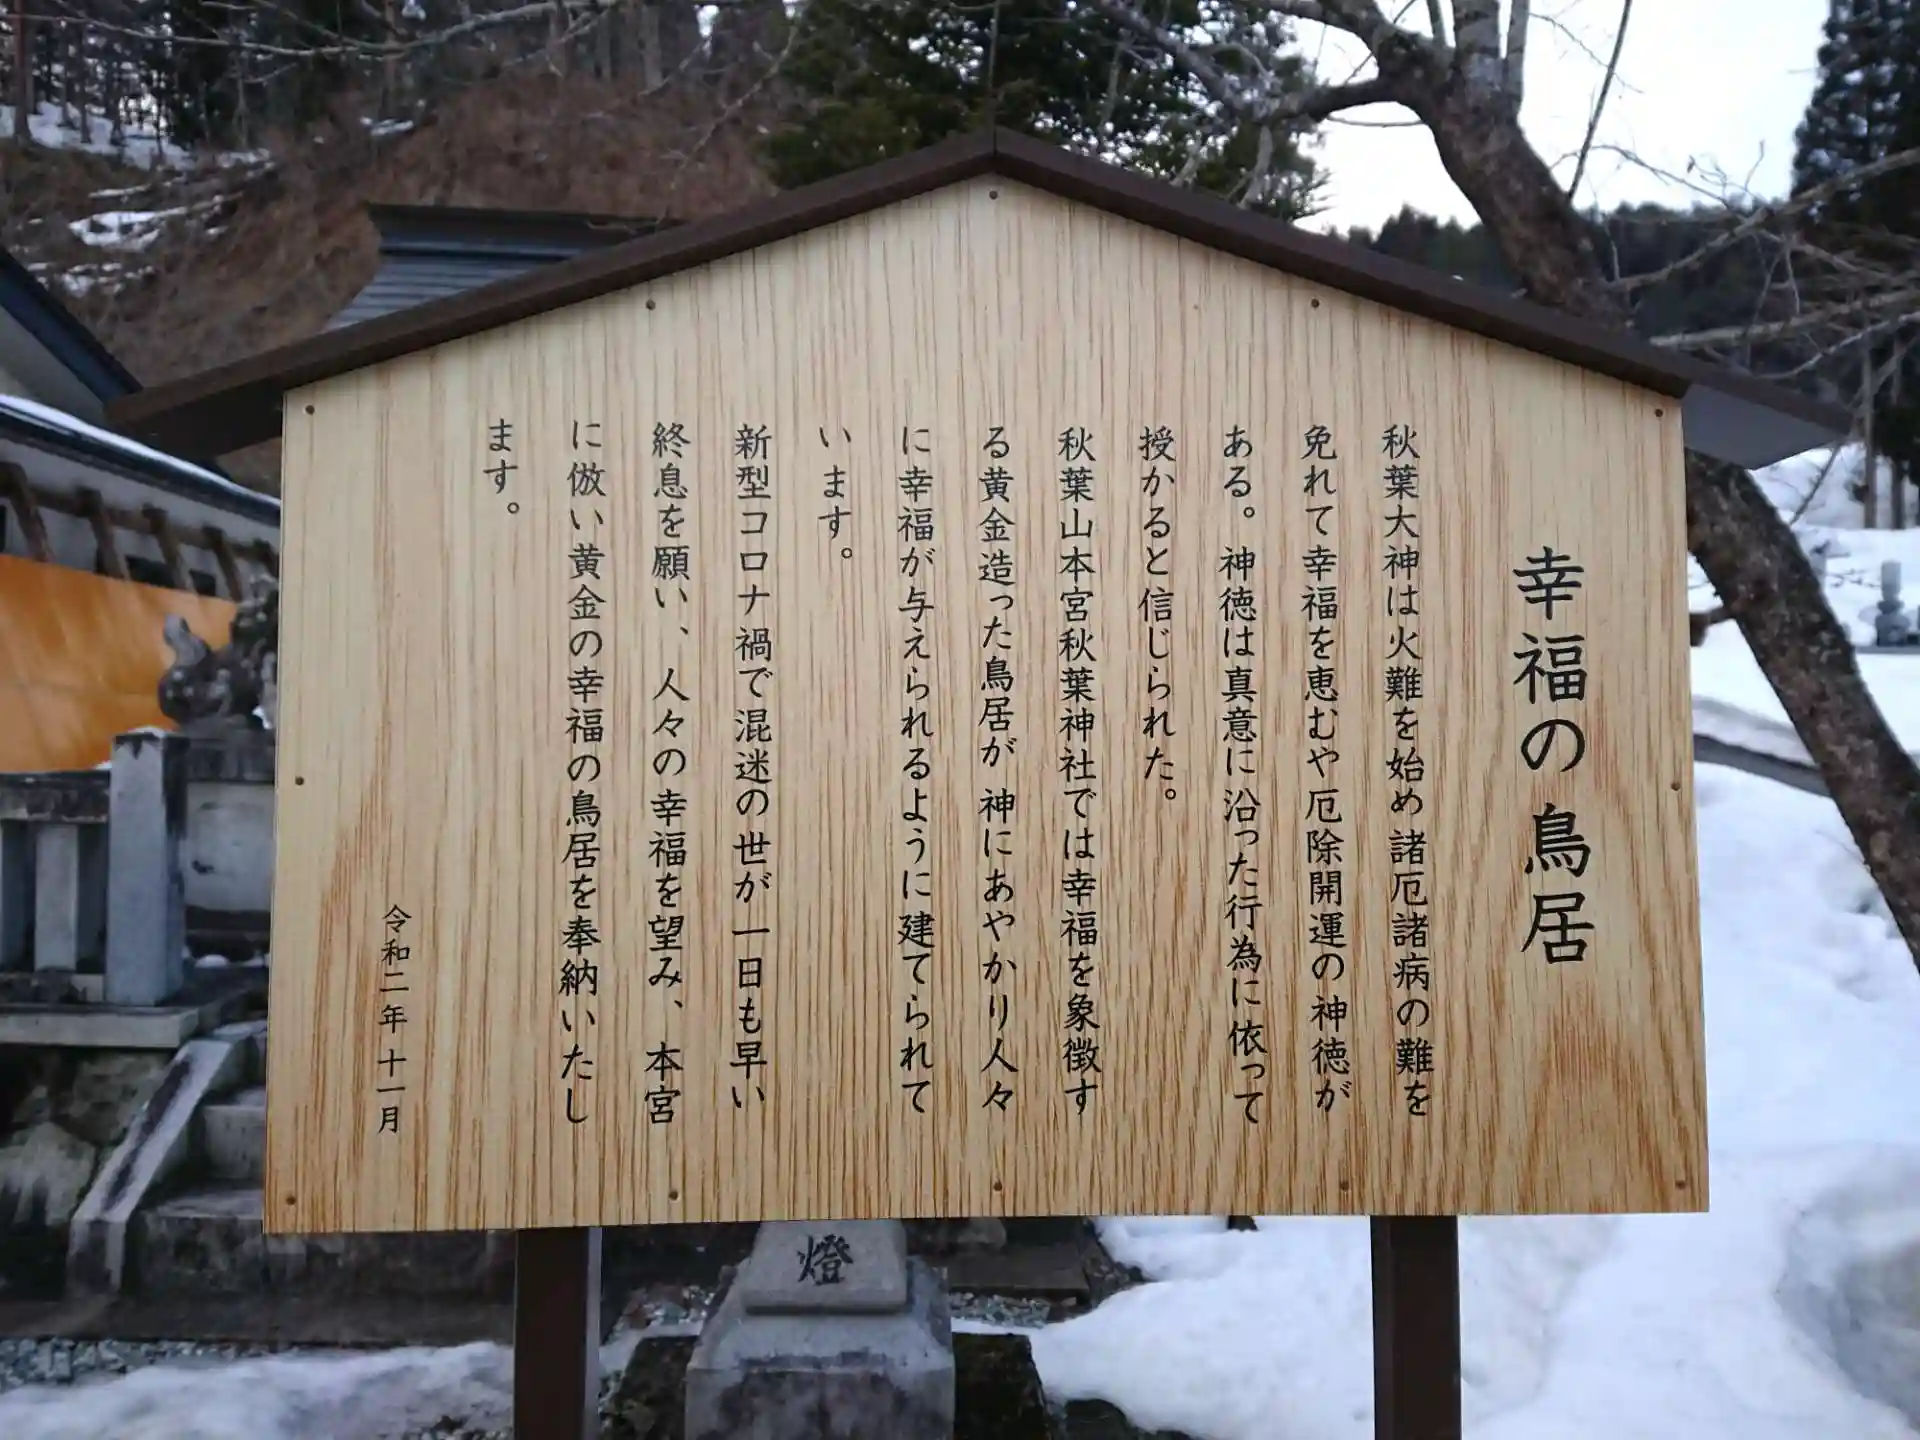 幸福の鳥居
秋葉大神は火難を始め諸厄諸病の難を
免れて幸福を恵むや厄除開運の神徳が
ある。神徳は真意に沿った行為に依って
授かると信じられた。
秋葉山本宮秋葉神社では幸福を象徴す
る黄金造った鳥居が神にあやかり人々
に幸福が与えられるように建てられて
います。
新型コロナ禍で混迷の世が一日も早い
終息を願い、人々の幸福を望み、本宮
に倣い黄金の幸福の鳥居を奉納いたし
ます。
令和二年十一月
燈